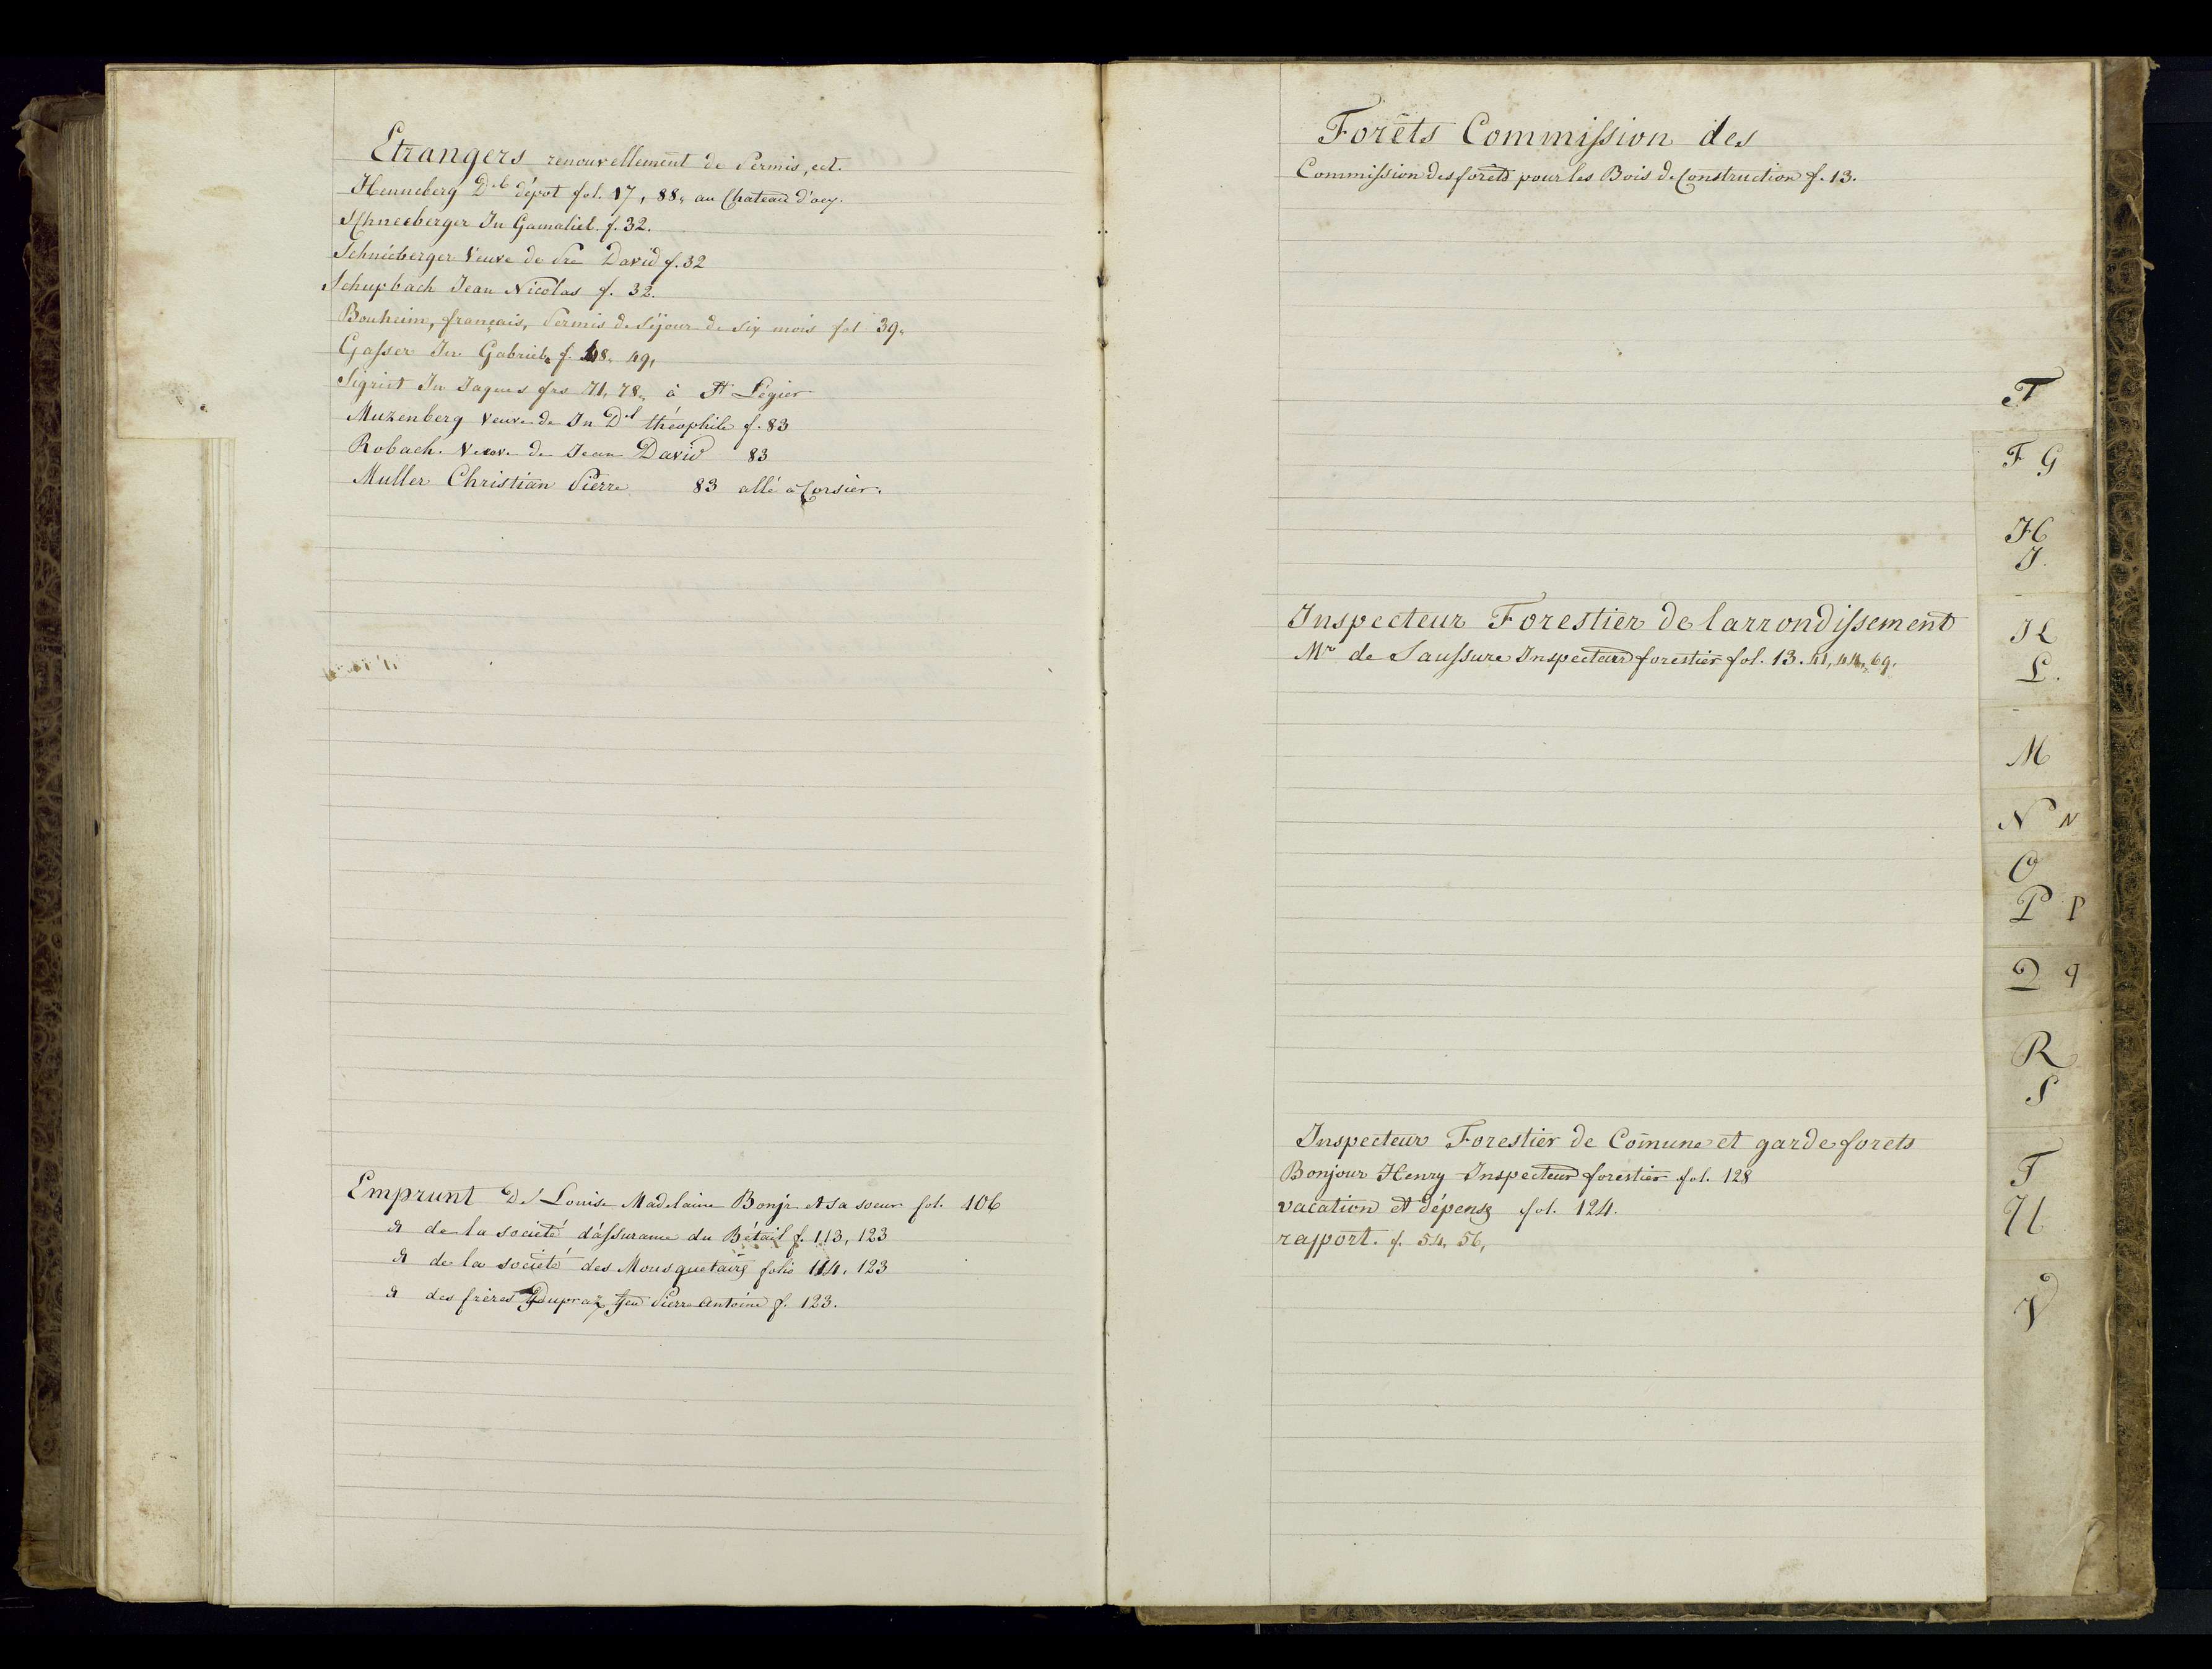 Etrangers renouvellement de Permis, ect.
Henneberg D.l dépot fol. 17, 88, au Chateau d'oex.
Schneeberger Jn Gamaliel. f. 32.
Schneéberger Veuve de Pre David f. 32
Schupbach Jean Nicolas f. 32.
Bonheim, français, Permis de Séjour de Six mois fol 39,
Gasser Jn Gabriel, f. 48, 49,
Sigrist Jn Jaques frs 71, 78, à St Légier
Muzenberg Veuve de Jn Dl théophile f. 83
Robach. Veuve de Jean David 83
Muller Christian Pierre 83 allé à Corsier.
Emprunt De Louise Madelaine Bonjr et sa soeur fol. 106
de la societé d'assurance du Bétail f. 113, 123
de la societé des Mousquetaires folio 114, 123
des frères Dupraz feu Pierre Antoine f. 123.
Forêts Commission des
Commission des forêts pour les Bois de Construction f. 13.
Inspecteur Forestier de larrondissement
Mr de Saussure Inspecteur forestier fol. 13. 41, 44, 69.
Inspecteur Forestier de Com̄une et garde forets
Bonjour Henry Inspecteur forestier fol. 128
vacation et dépense fol. 124.
rapport. f. 54, 56,
F
F G
H
J.
K
L.
M
N N
O
P P
Q q
R
S
T
U
V